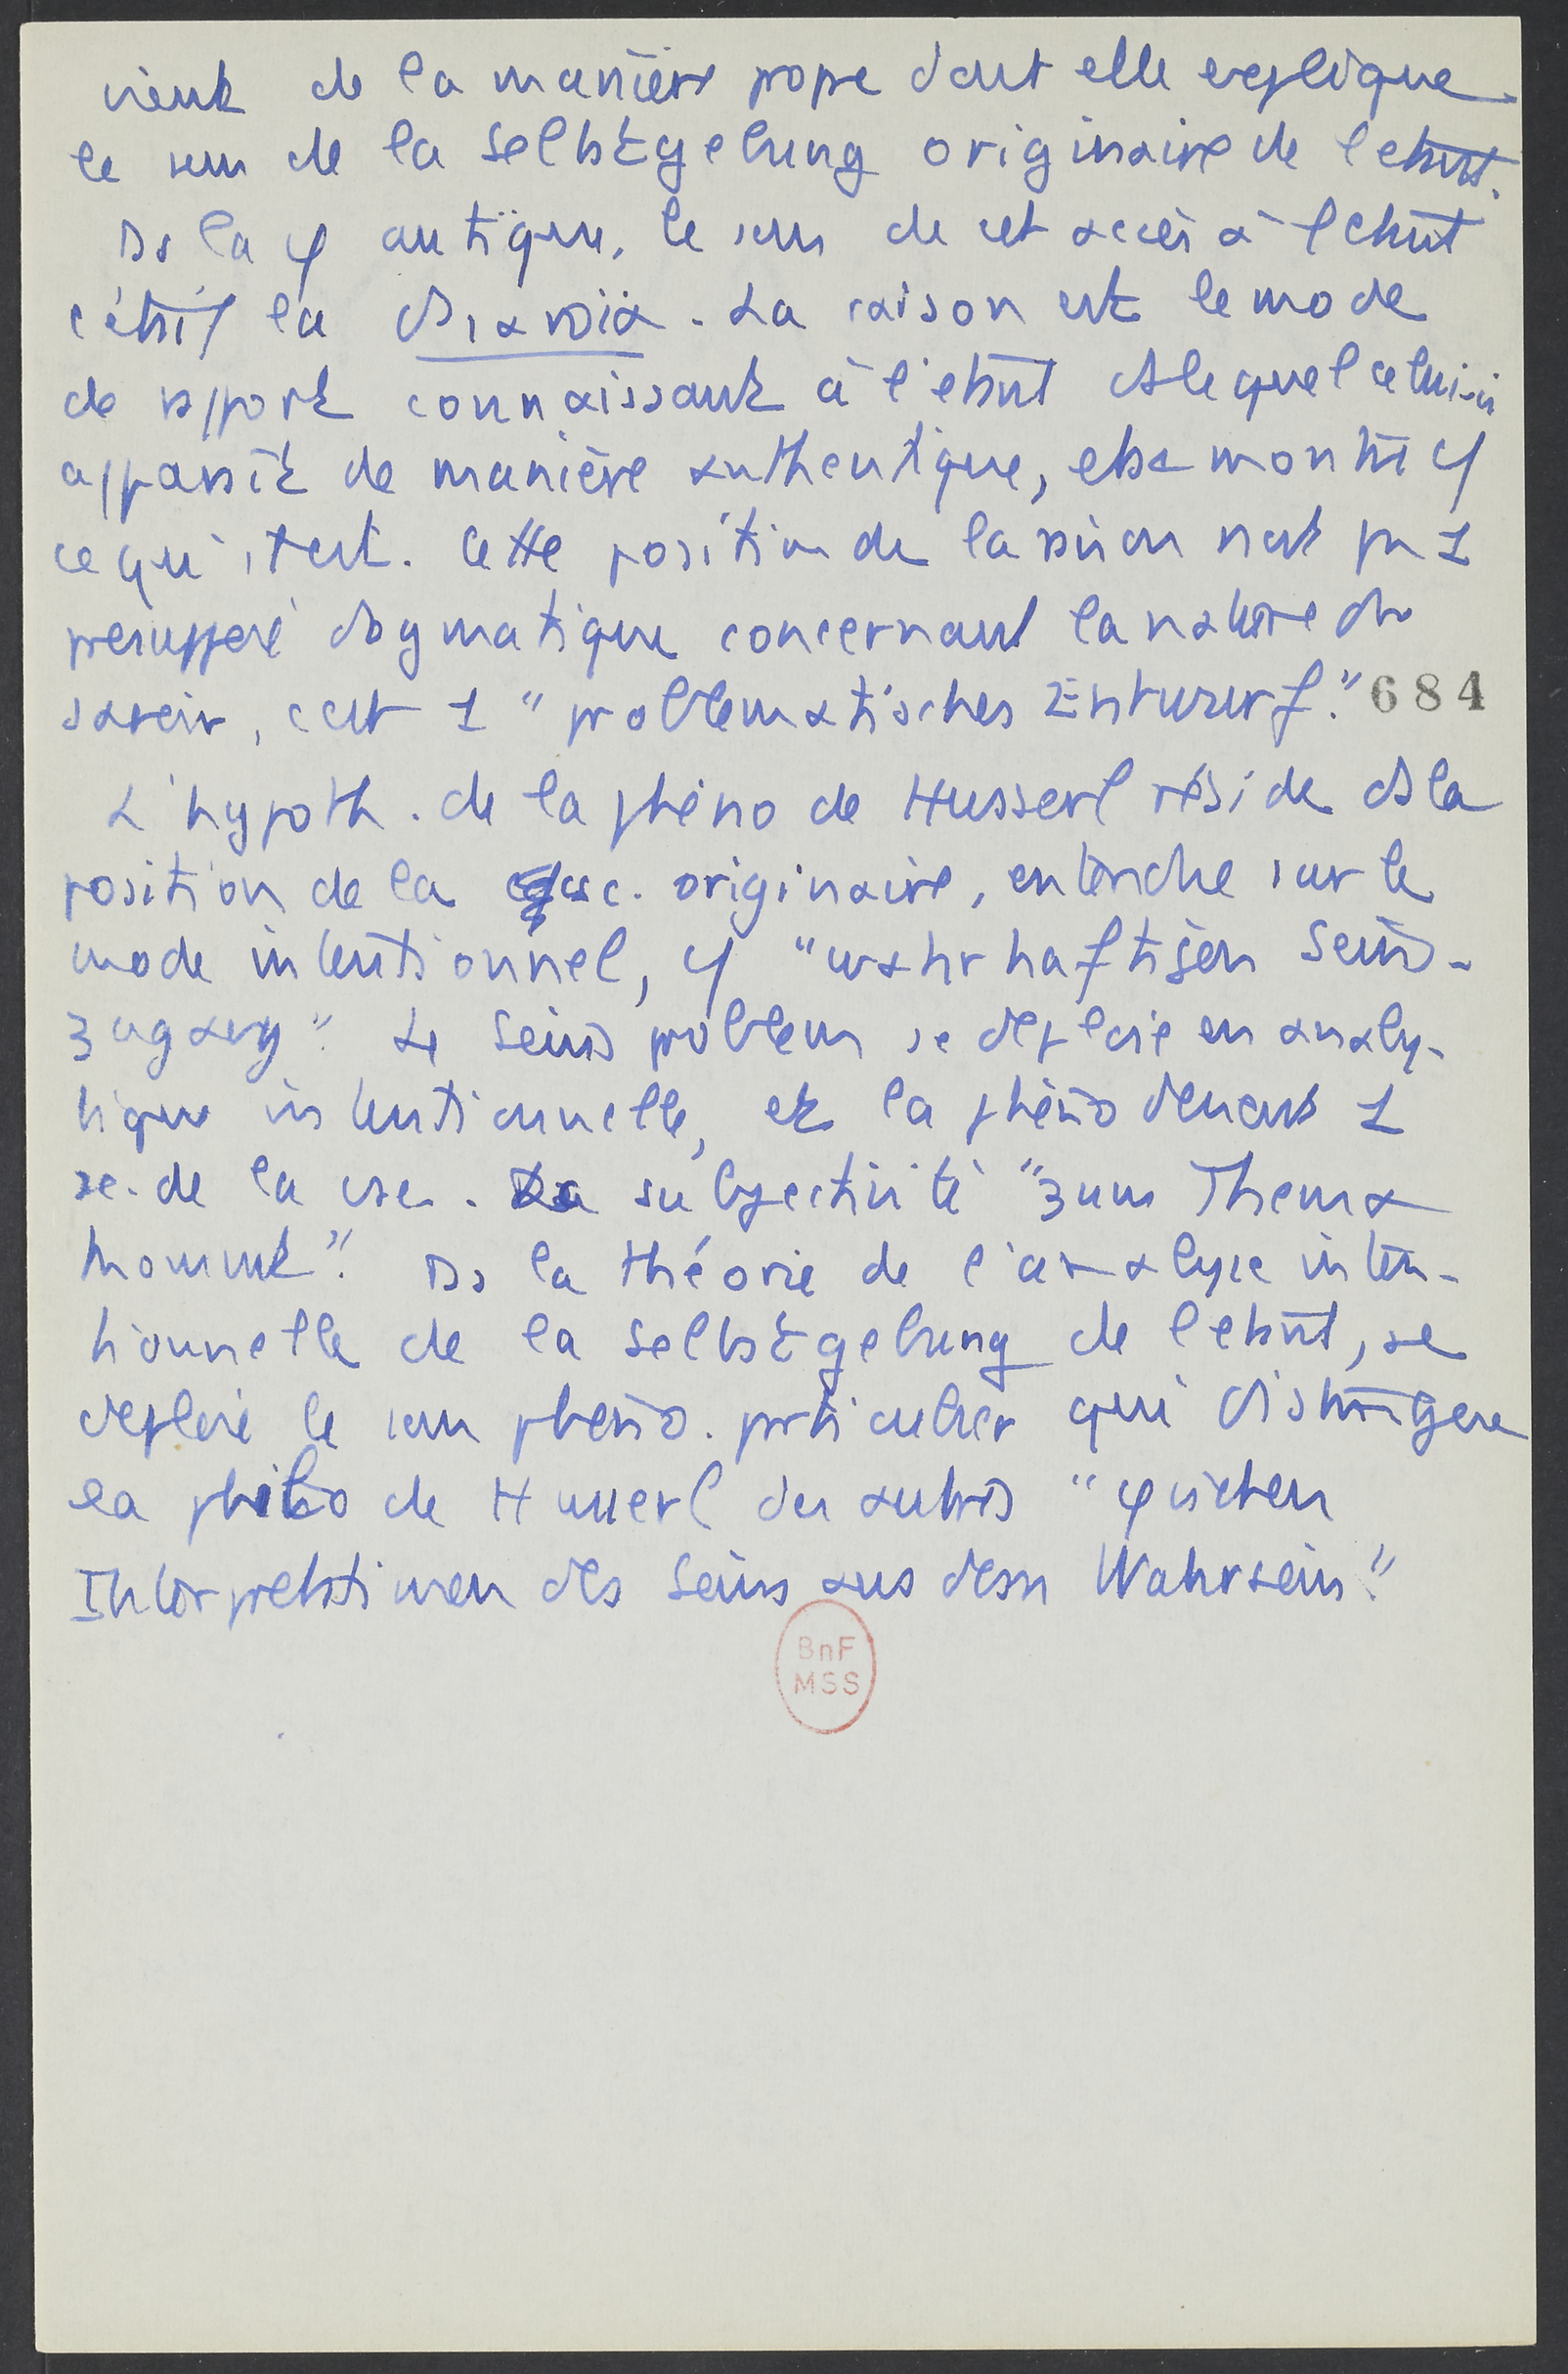 vient de la manière propre dont elle explique
le sens de la Selbstgebung originaire de l'etant.
Ds la φ antique, le sens de cet accès à l'etant
c'était la διανοια. La raison est le mode
de rapport connaissant à l'etant ds lequel celui-ci
apparait de manière authentique, et se montre
ce qu'il est. Cette position de la raison n'est pas 1
presupposé dogmatique concernant la nature du
savoir, c'est 1 "problematisches Entwurf." 684
L'hypoth. de la phéno de Husserl réside ds la
position de la csc. originaire, entendue sur le
mode intentionnel, "wahrhaftigen Seins-
zugang". Le Seinsproblem se deploie en analy-
tique intentionnelle, et la phéno devient 1
sc. de la csc. La subjectivité "zum Thema
kommt". Ds la théorie de l'analyse inten-
tionnelle de la Selbstgebung de l'etant, se
deploie le sens phéno. particulier qui distingue
la philo de Husserl des autres
Interpretationen des Seins aus dem Wahrsein."
BnF
MSS